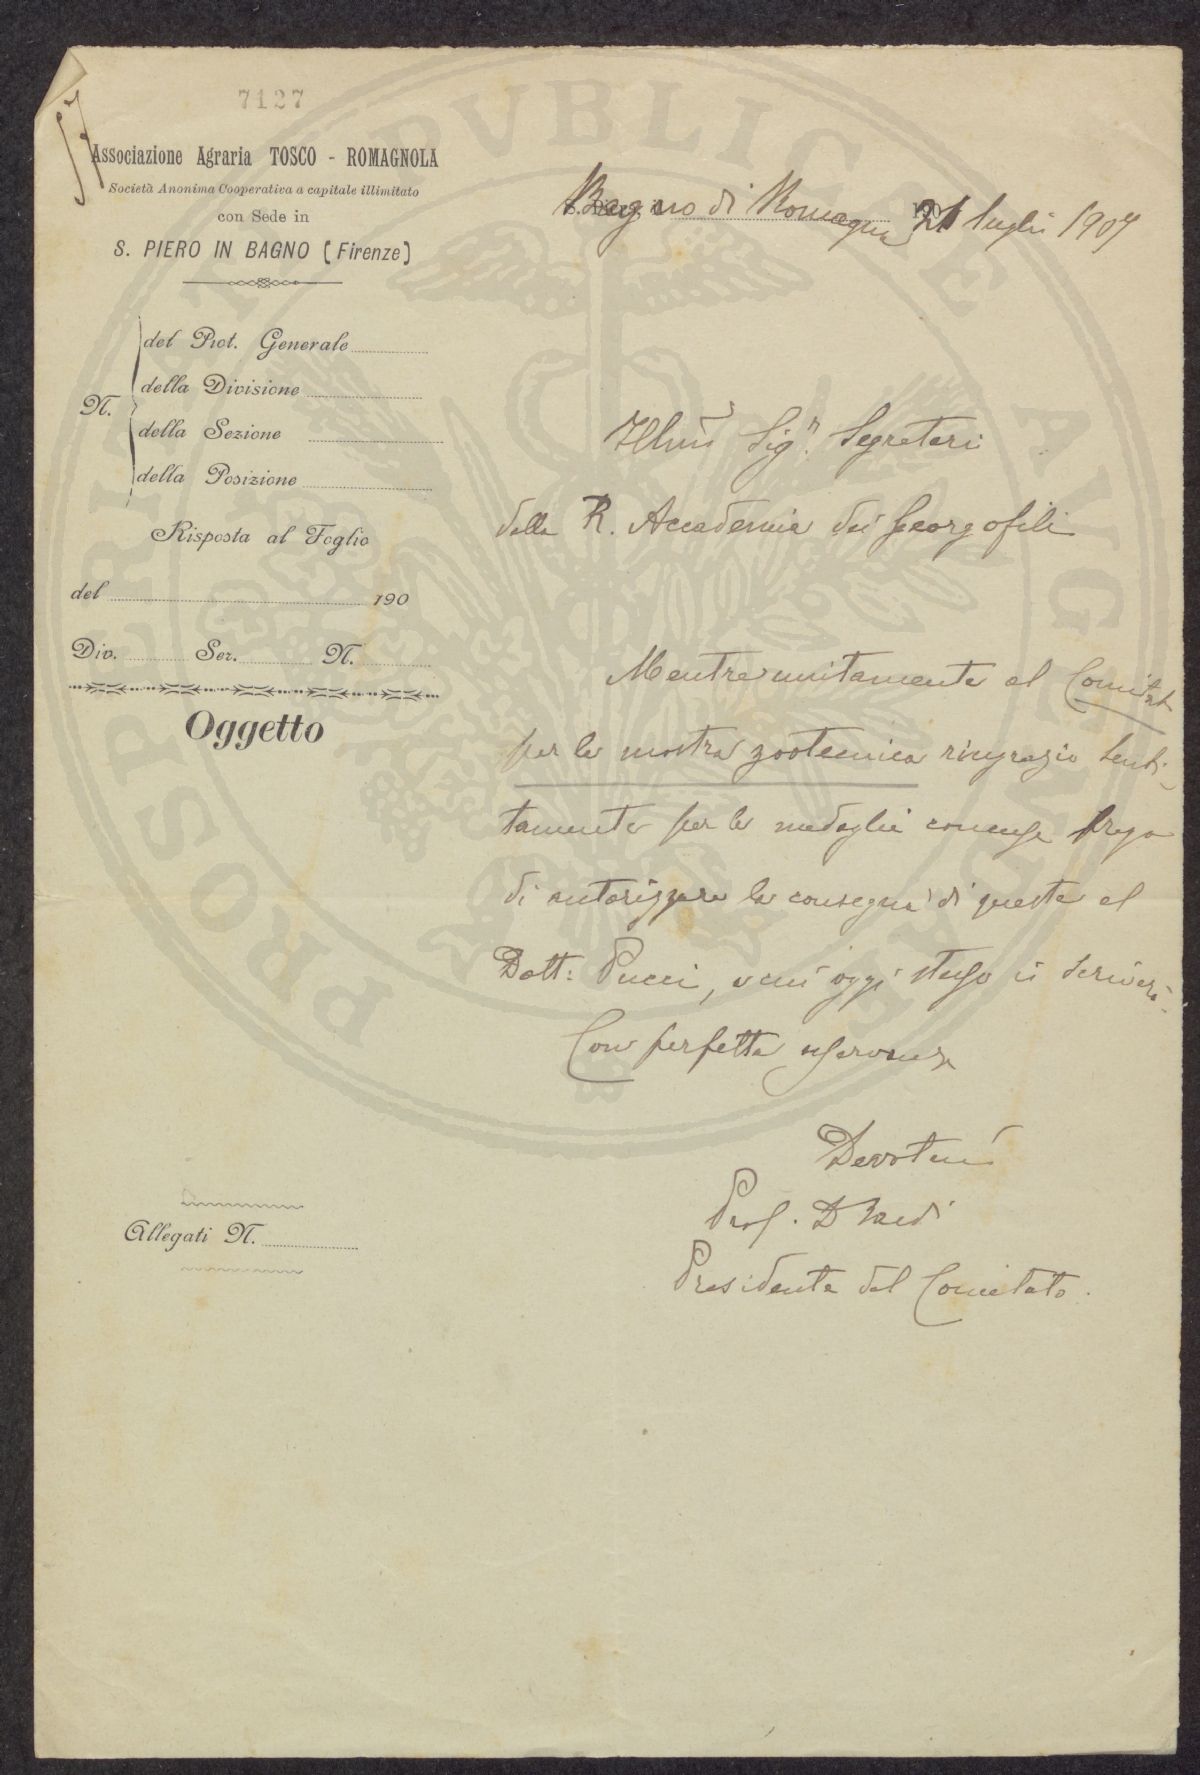 7127
57
Associazione Agraria TOSCO - ROMAGNOLA
Società Anonima Cooperativa a capitale illimitato
con Sede in
S. PIERO IN BAGNO (Firenze)
Bagno di Romagna 21 luglio 1907
N.
del Prot. Generale
della Divisione
della Sezione
della Posizione
Risposta al Foglio
del 190
Div. Sez. N.
Oggetto
Illmo Sigr. Segretario
della R. Accademia dei Georgofili
Mentre unitamente al Comitato
per la mostra zootecnica ringrazio senti-
tamente per le medaglie concesse prego
di autorizzare la consegna di queste al
Dott: Pucci, a cui oggi stesso si scriverà.
Con perfetta osservanza
Devotmo
Prof. D
Presidente del Comitato.
Allegati N.
PROSPERITATI PVBLICAE AVGENDAE